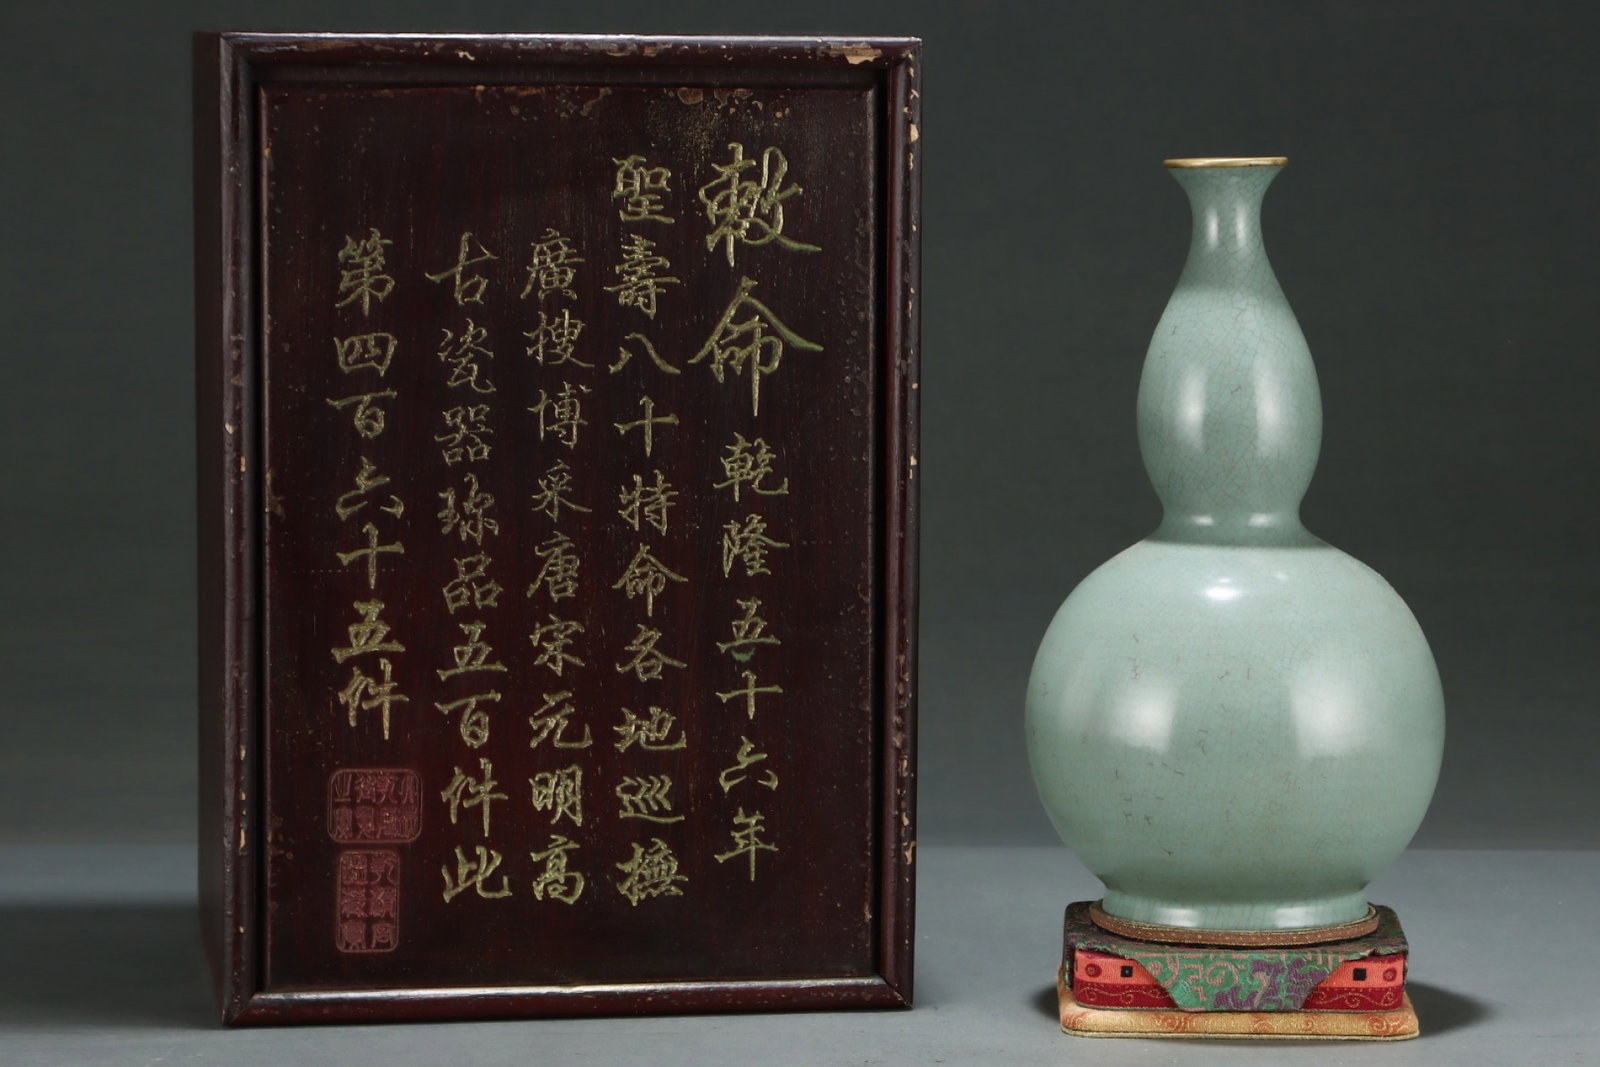 敕命乾隆五十六年
聖壽八十特命各地巡撫
廣搜博采唐宋元明高
古瓷器珍品五百件此
第四百六十五件